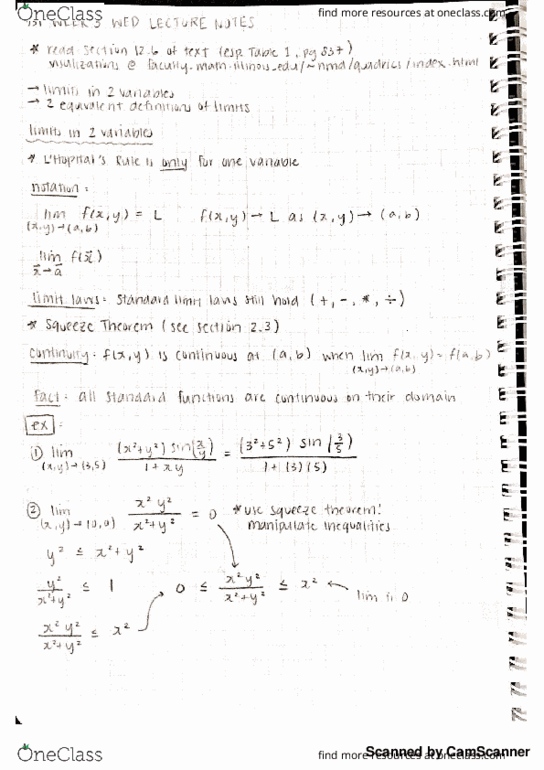 OneClass
find more resources at oneclass.com
WEEK 3 WED LECTURE NOTES
* read section 12.6 of text (esp. Table 1, pg 837)
visualizations @ faculty.math.illinois.edu/~nmd/quadrics/index.html
→ limits in 2 variables
→ 2 equivalent definitions of limits
limits in 2 variables
* L'Hopital's Rule is only for one variable
notation:
lim f(x,y) = L f(x,y) → L as (x,y) → (a,b)
(x,y)→(a,b)
lim f(x⃗)
x⃗→a⃗
limit laws: standard limit laws still hold (+, -, *, ÷)
* Squeeze Theorem (see section 2.3)
continuity: f(x,y) is continuous at (a,b) when lim f(x,y) = f(a,b)
(x,y)→(a,b)
Fact: all standard functions are continuous on their domain
ex:
① lim (x²+y²) sin(x/y) / 1+xy = (3²+5²) sin(3/5) / 1+(3)(5)
(x,y)→(3,5)
② lim x²y² / x²+y² = 0 *use squeeze theorem!
(x,y)→(0,0) manipulate inequalities
y² ≤ x²+y²
y² / x²+y² ≤ 1 0 ≤ x²y² / x²+y² ≤ x² lim is 0
x²y² / x²+y² ≤ x²
OneClass
find more resources at oneclass.com
Scanned by CamScanner